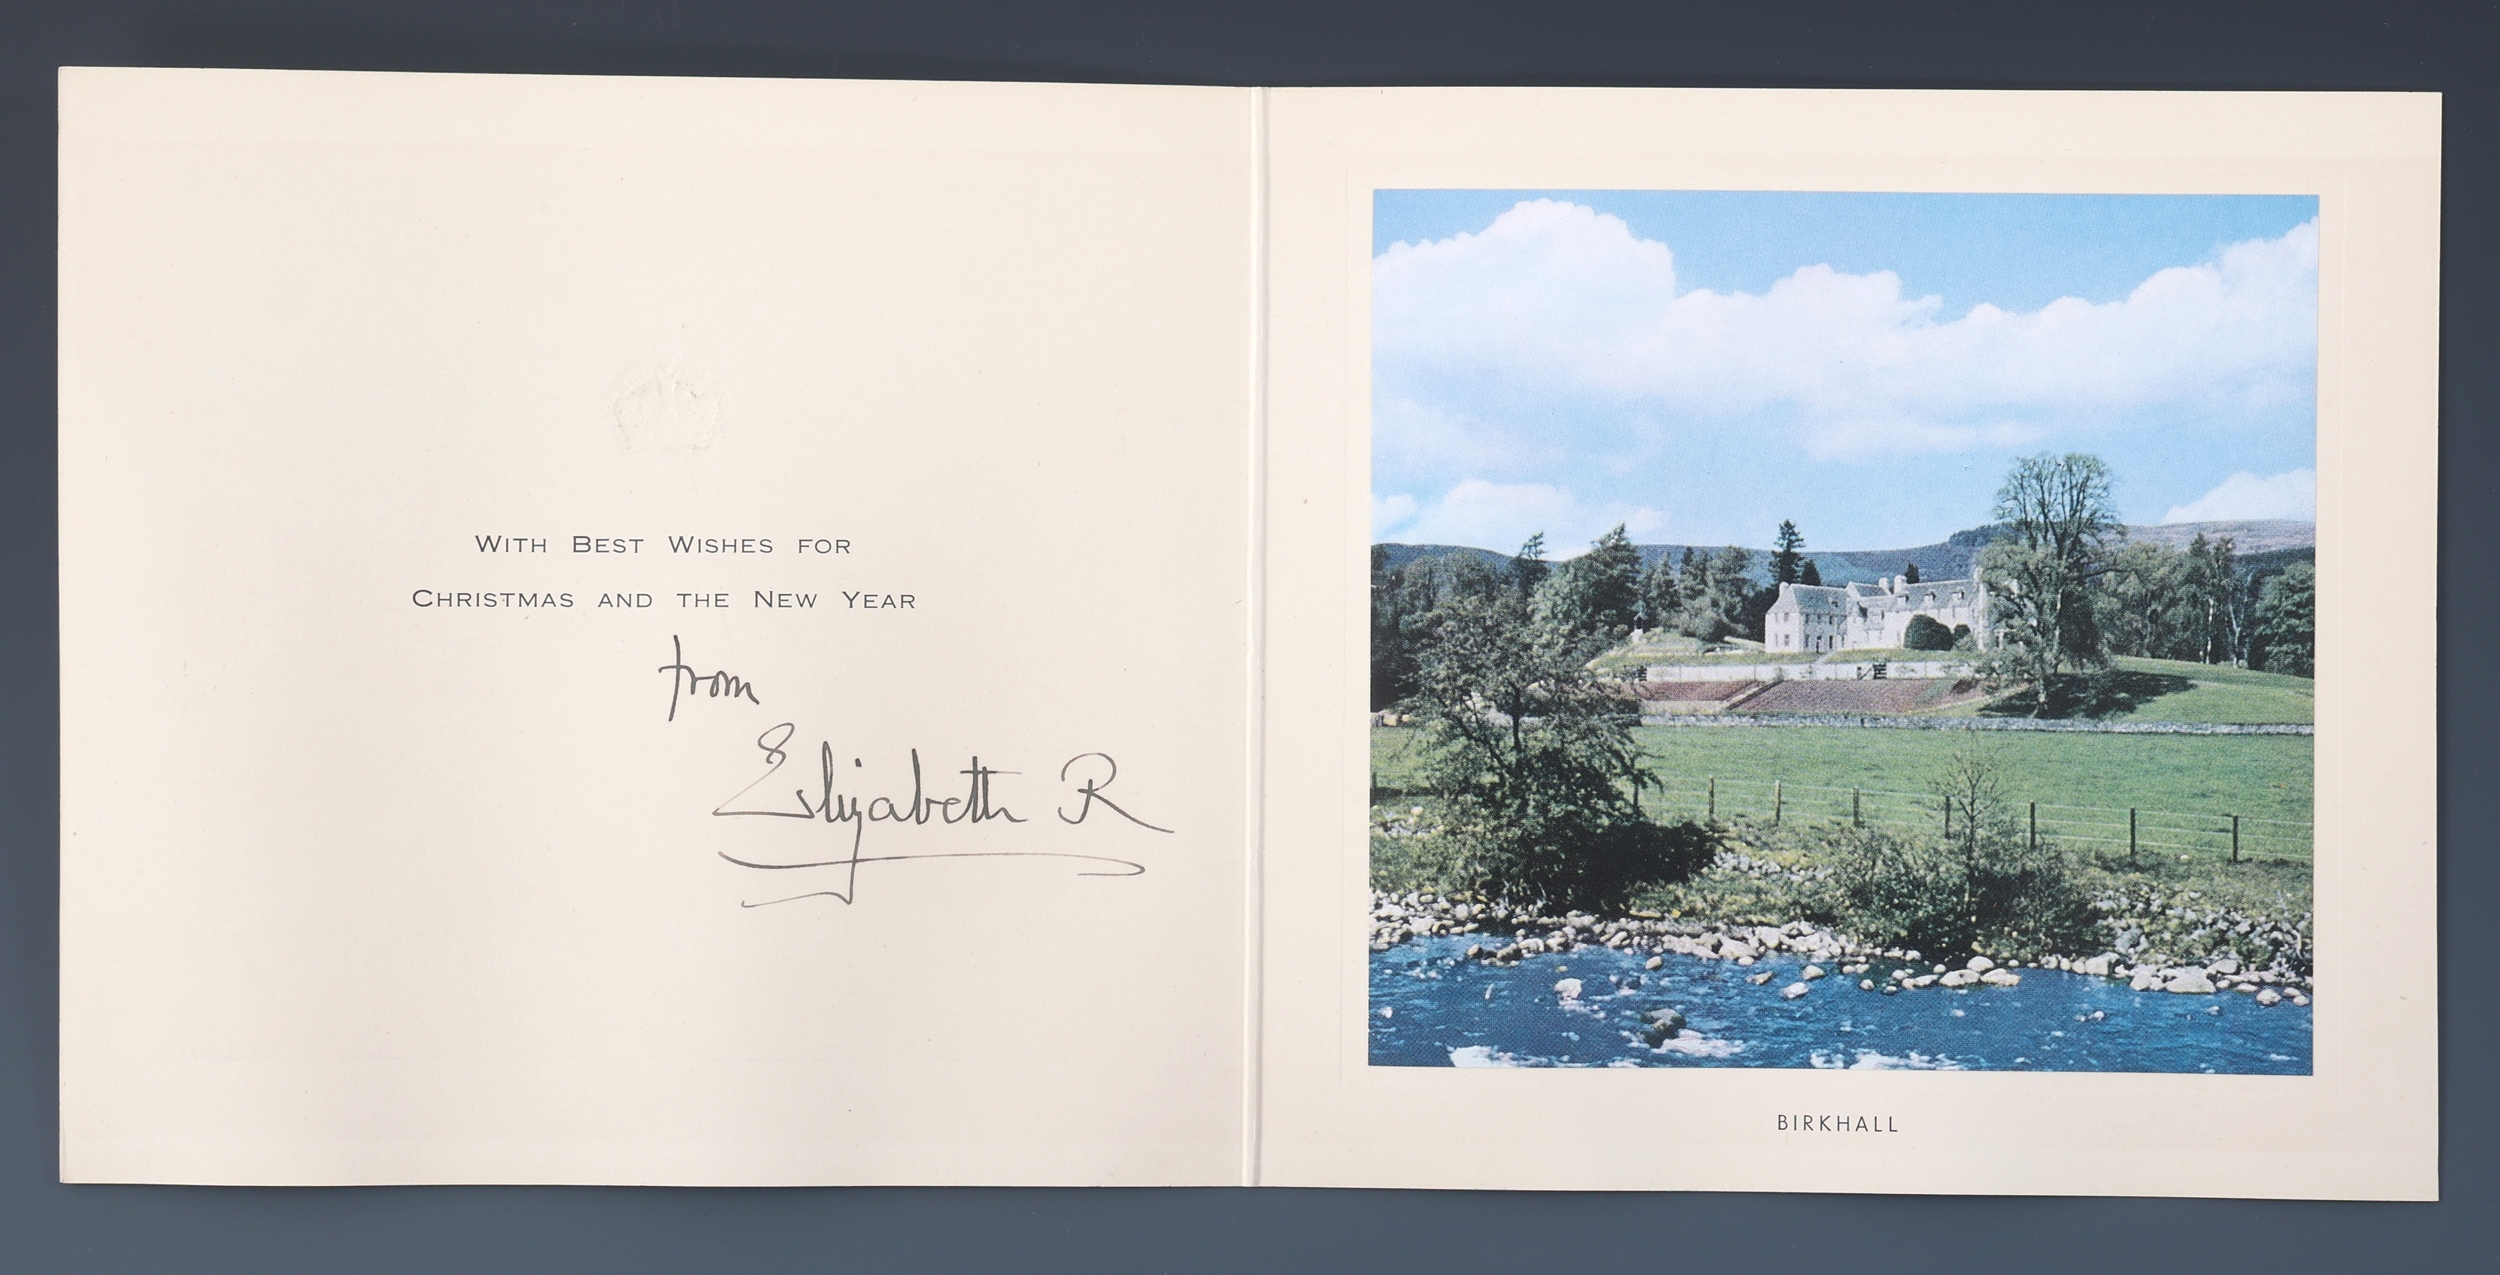 With Best Wishes for
Christmas and the New Year
from
Elizabeth R
BIRKHALL